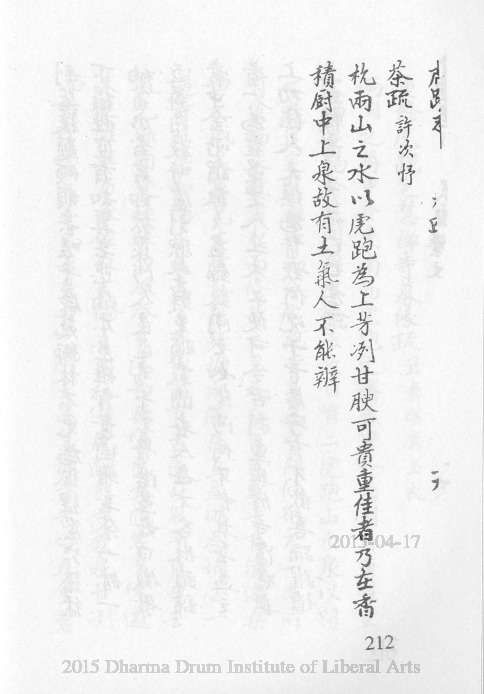 茶疏 許次忬
杭兩山之水以虎跑為上芳冽甘腴可貴重佳者乃在香
積厨中上泉故有土氣人不能辨
2015-04-17
212
2015 Dharma Drum Institute of Liberal Arts